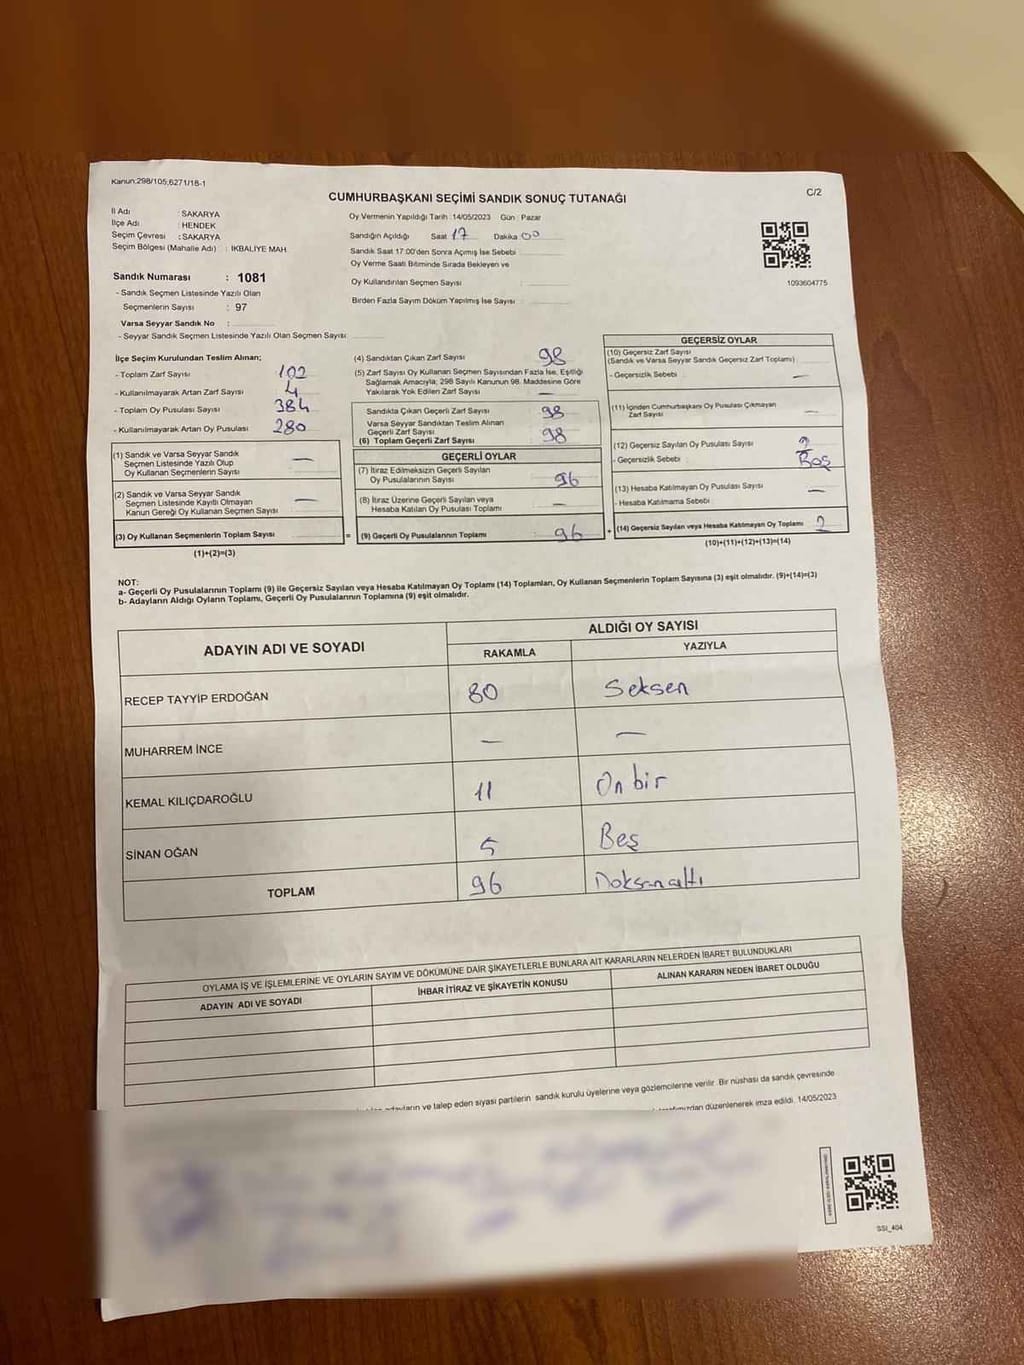 Kanun:298/105;6271/18-1
C/2
CUMHURBAŞKANI SEÇİMİ SANDIK SONUÇ TUTANAĞI
İl Adı : SAKARYA
İlçe Adı : HENDEK
Seçim Çevresi : SAKARYA
Seçim Bölgesi (Mahalle Adı) : İKBALİYE MAH.
Sandık Numarası : 1081
- Sandık Seçmen Listesinde Yazılı Olan
Seçmenlerin Sayısı : 97
Varsa Seyyar Sandık No :
- Seyyar Sandık Seçmen Listesinde Yazılı Olan Seçmen Sayısı
Oy Vermenin Yapıldığı Tarih : 14/05/2023 Gün : Pazar
Sandığın Açıldığı Saat 17 Dakika 00
Sandık Saat 17:00'den Sonra Açımış İse Sebebi
Oy Verme Saati Bitiminde Sırada Bekleyen ve
Oy Kullandırılan Seçmen Sayısı :
Birden Fazla Sayım Döküm Yapılmış İse Sayısı :
1093604775
İlçe Seçim Kurulundan Teslim Alınan;
- Toplam Zarf Sayısı 102
- Kullanılmayarak Artan Zarf Sayısı 4
- Toplam Oy Pusulası Sayısı 384
- Kullanılmayarak Artan Oy Pusulası 280
(1) Sandık ve Varsa Seyyar Sandık
Seçmen Listesinde Yazılı Olup
Oy Kullanan Seçmenlerin Sayısı —
(2) Sandık ve Varsa Seyyar Sandık
Seçmen Listesinde Kayıtlı Olmayan
Kanun Gereği Oy Kullanan Seçmen Sayısı —
(3) Oy Kullanan Seçmenlerin Toplam Sayısı =
(1)+(2)=(3)
(4) Sandıktan Çıkan Zarf Sayısı 98
(5) Zarf Sayısı Oy Kullanan Seçmen Sayısından Fazla İse, Eşitliği
Sağlamak Amacıyla; 298 Sayılı Kanunun 98. Maddesine Göre
Yakılarak Yok Edilen Zarf Sayısı —
Sandıkta Çıkan Geçerli Zarf Sayısı 98
Varsa Seyyar Sandıktan Teslim Alınan
Geçerli Zarf Sayısı
(6) Toplam Geçerli Zarf Sayısı 98
GEÇERLİ OYLAR
(7) İtiraz Edilmeksizin Geçerli Sayılan
Oy Pusulalarının Sayısı 96
(8) İtiraz Üzerine Geçerli Sayılan veya
Hesaba Katılan Oy Pusulası Toplamı —
(9) Geçerli Oy Pusulalarının Toplamı : 96 +
GEÇERSİZ OYLAR
(10) Geçersiz Zarf Sayısı
(Sandık ve Varsa Seyyar Sandık Geçersiz Zarf Toplamı)
- Geçersizlik Sebebi : —
(11) İçinden Cumhurbaşkanı Oy Pusulası Çıkmayan
Zarf Sayısı —
(12) Geçersiz Sayılan Oy Pusulası Sayısı 2
- Geçersizlik Sebebi : Boş
(13) Hesaba Katılmayan Oy Pusulası Sayısı —
- Hesaba Katılmama Sebebi :
(14) Geçersiz Sayılan veya Hesaba Katılmayan Oy Toplamı 2
(10)+(11)+(12)+(13)=(14)
NOT:
a- Geçerli Oy Pusulalarının Toplamı (9) ile Geçersiz Sayılan veya Hesaba Katılmayan Oy Toplamı (14) Toplamları, Oy Kullanan Seçmenlerin Toplam Sayısına (3) eşit olmalıdır. (9)+(14)=(3)
b- Adayların Aldığı Oyların Toplamı, Geçerli Oy Pusulalarının Toplamına (9) eşit olmalıdır.
ADAYIN ADI VE SOYADI
ALDIĞI OY SAYISI
RAKAMLA YAZIYLA
RECEP TAYYİP ERDOĞAN 80 Seksen
MUHARREM İNCE — —
KEMAL KILIÇDAROĞLU 11 On bir
SİNAN OĞAN 5 Beş
TOPLAM 96 Doksanaltı
OYLAMA İŞ VE İŞLEMLERİNE VE OYLARIN SAYIM VE DÖKÜMÜNE DAİR ŞİKAYETLERLE BUNLARA AİT KARARLARIN NELERDEN İBARET BULUNDUKLARI
ADAYIN ADI VE SOYADI İHBAR İTİRAZ VE ŞİKAYETİN KONUSU ALINAN KARARIN NEDEN İBARET OLDUĞU
adayların ve talep eden siyasi partilerin sandık kurulu üyelerine veya gözlemcilerine verilir. Bir nüshası da sandık çevresinde
tarafımızdan düzenlenerek imza edildi. 14/05/2023
SSI_404